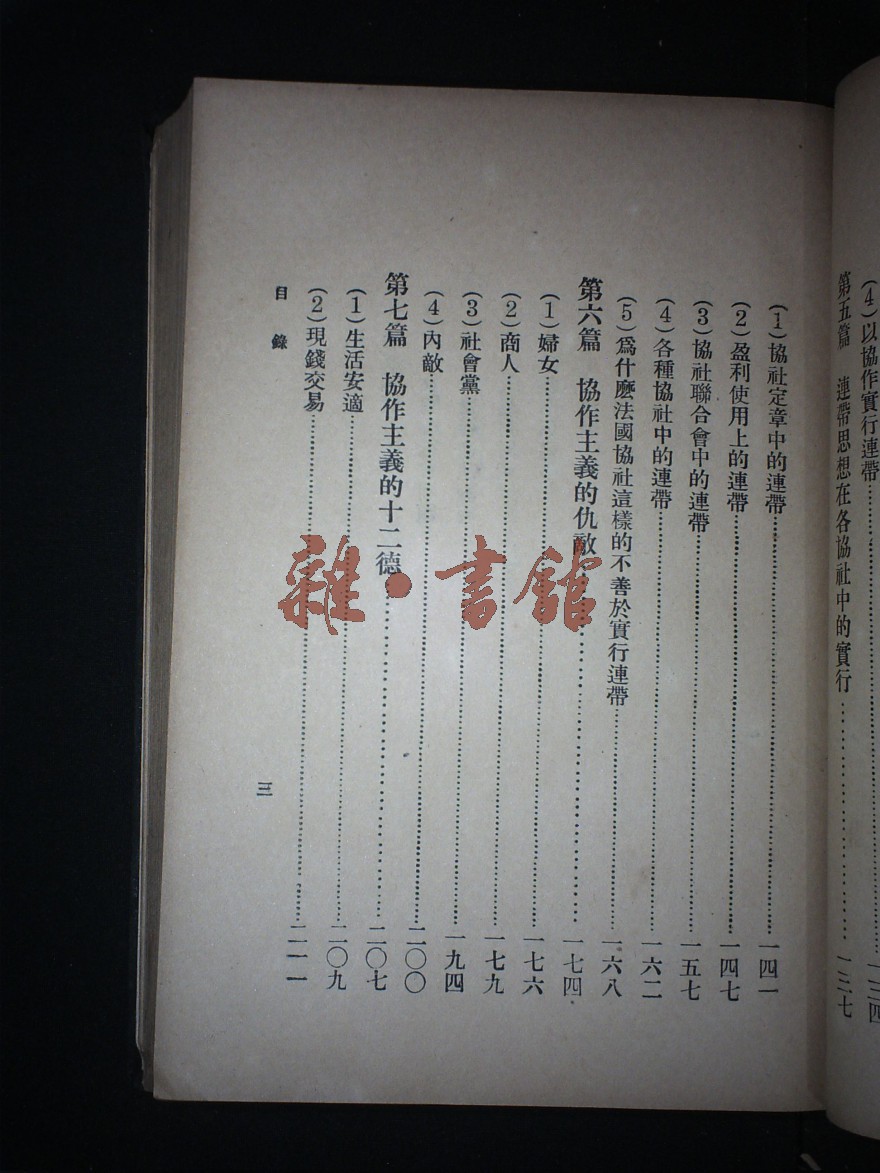 (4)以協作實行連帶……一三四
第五篇 連帶思想在各協社中的實行……一三七
(1)協社定章中的連帶……一四一
(2)盈利使用上的連帶……一四七
(3)協社聯合會中的連帶……一五七
(4)各種協社中的連帶……一六二
(5)爲什麽法國協社這樣的不善於實行連帶……一六八
第六篇 協作主義的仇敵……一七四
(1)婦女……一七六
(2)商人……一七九
(3)社會黨……一九四
(4)內敵……二〇〇
第七篇 協作主義的十二德……二〇七
(1)生活安適……二〇九
(2)現錢交易……二一一
目錄
三
雜·書館